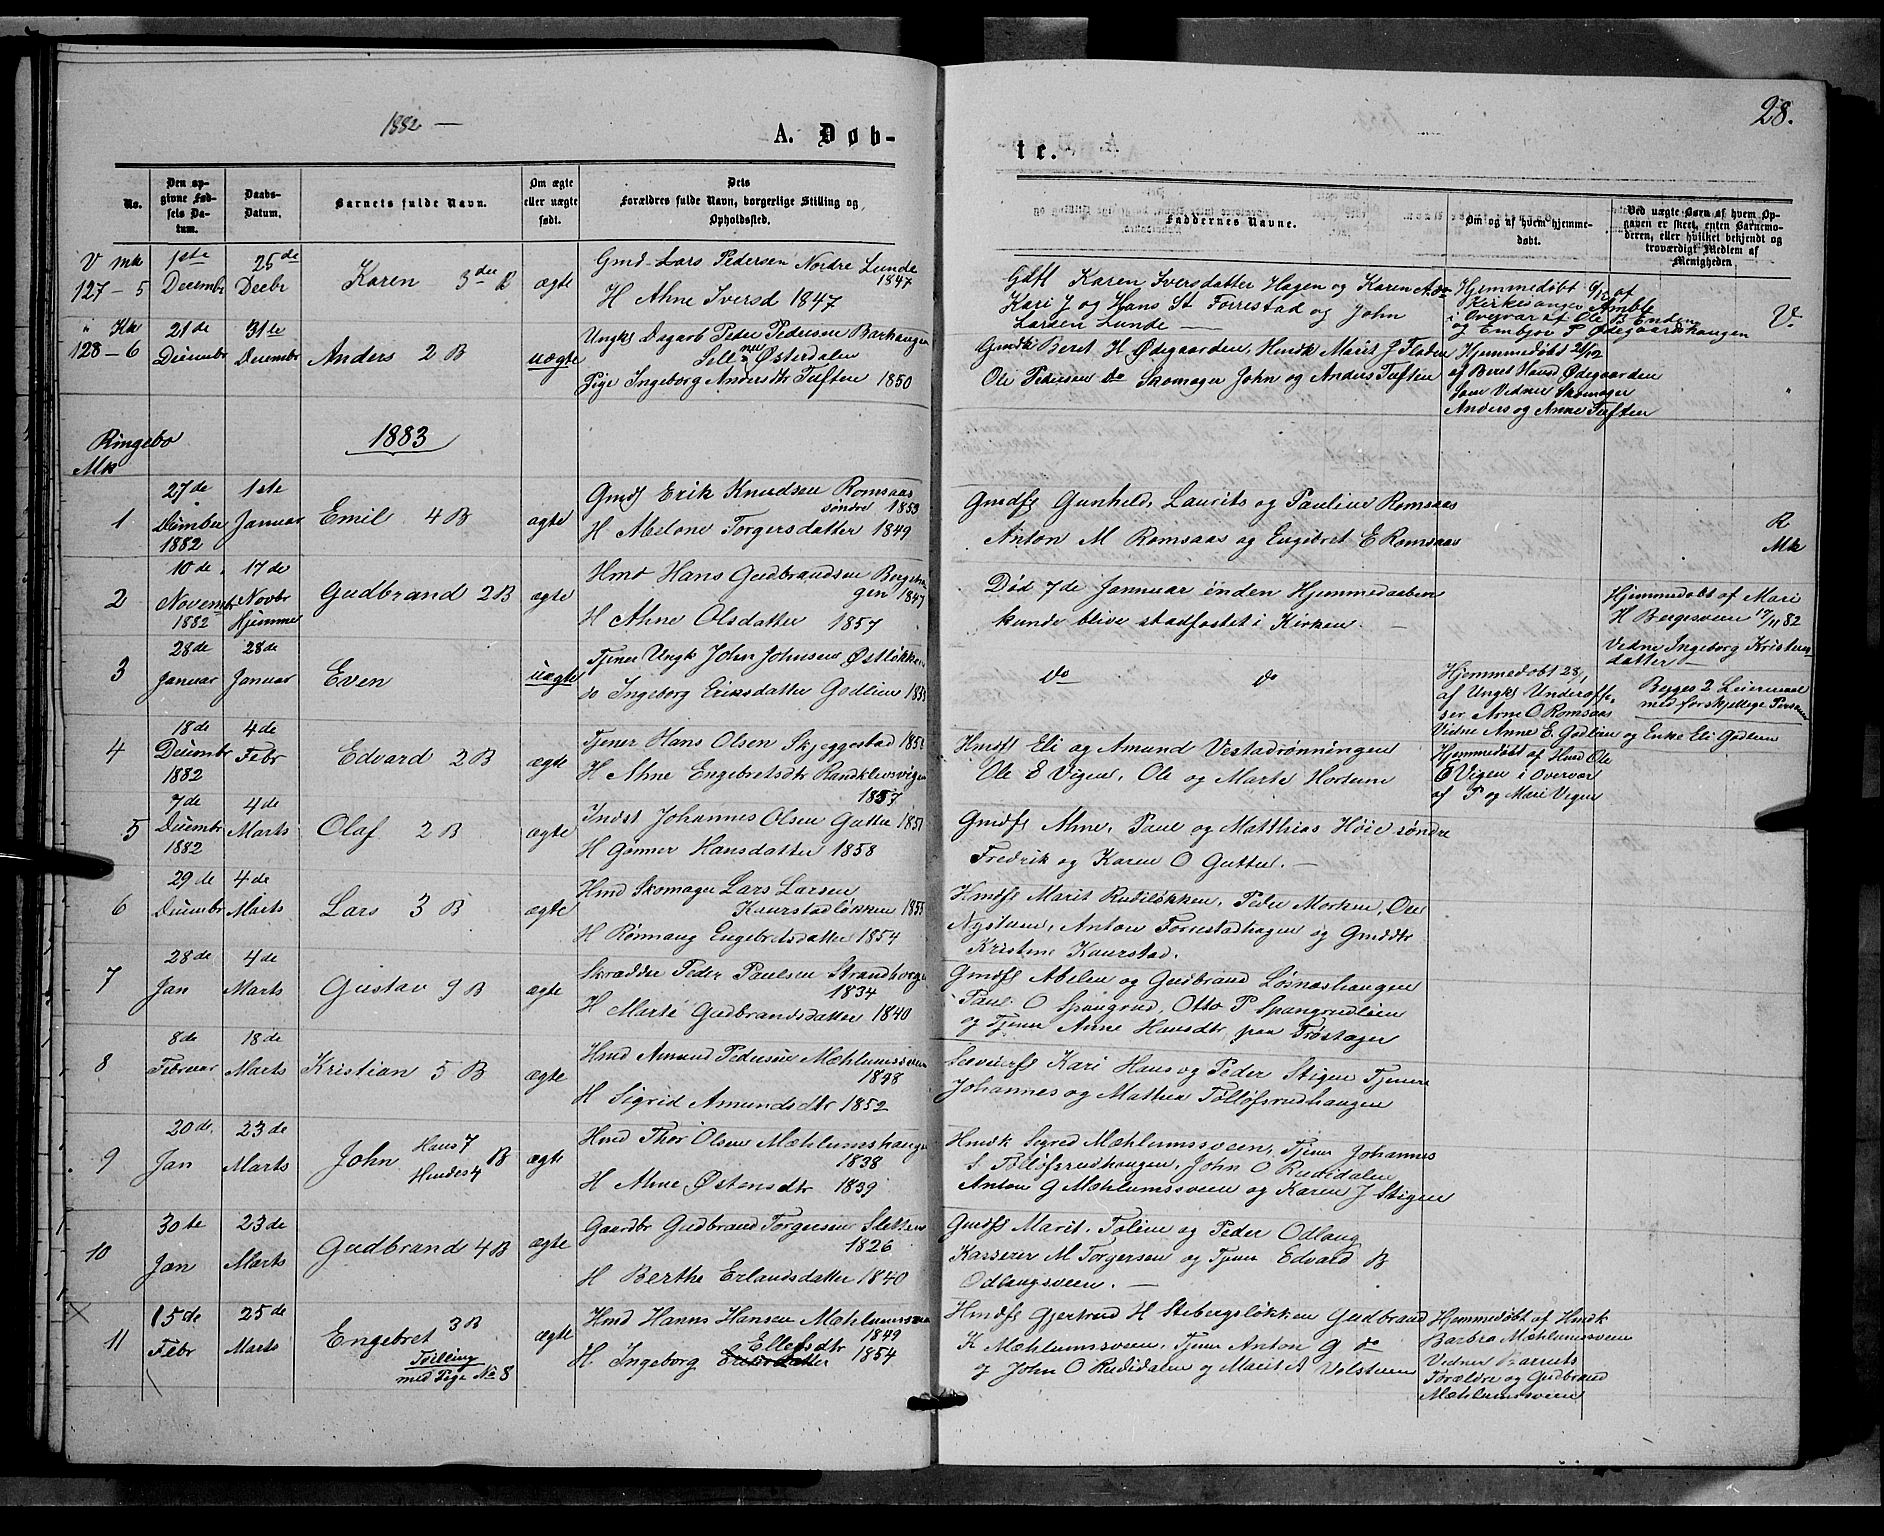 1882 —
A. Døb-
No.
Den op-
givne Fød-
sels Da-
tum.
Daabs-
Datum.
Barnets fulde Navn.
Om ægte
eller uægte
født.
Dets
Forældres fulde Navn, borgerlige Stilling og
Opholdssted.
28.
te.
Faddernes Navne.
Om og af hvem hjemme-
døbt.
Ved uægte Børn af hvem Op-
gaven er skeet, enten Barnemo-
deren, eller hvilket bekjendt og
troværdigt Medlem af
Menigheden
V Mk
127 – 5
1ste
Decembr
25de
Decbr
Karen 3die B
ægte
Gmd Lars Pedersen Nordre Lunde
1847
H Ahne Iversd 1847
Karen Iversdatter Hagen og Karen A do
Kari J og Hans St Forrestad og John
Larsen Lunde —
Hjemmedøbt 6/12 af
Kirkesanger Amble
i Overvær af Ole B Enden
og Embjør P Ødegaardshaugen
V.
" Kk
128 – 6
21de
Decembr
31te
Decembr
Anders 2 B
uægte
Ungk Dagarb Peder Pedersen Bakhaugen
Østerdalen
Pige Ingeborg Andersdtr Tuften 1850
Gmdk Beret H Ødegaarden, Hmdk Marit J Floden
Ole Pedersen do Skomager John og Anders Tuften
Hjemmedøbt 21/12
af Beret Hansd Ødegaarden
som Vidner Skomager
Anders og Anne Tuften
"
Ringebo
Mk
1883
1
27de
Decmber
1882
1ste
Januar
Emil 4 B
ægte
Gmdf Erik Knudsen Romsaas
søndre 1853
H Abelone Torgersdatter 1849
Gmdfs Gunhild, Laurits og Pauline Romsaas
Anton M Romsaas og Engebret E Romsaas
R
Mk
2
10de
Novembr
1882
17de
Novbr
hjemme
Gudbrand 2 B
ægte
Hmd Hans Gudbrandsen Bergesve
gen 1847
H Ahne Olsdatter 1857
Død 7de Januar inden Hjemmedaaben
kunde blive stadfæstet i Kirken. —
Hjemmedøbt af Mari
H Bergesveen 17/11 82
Vidne Ingeborg Kristens-
datter —
3
28de
Januar
28de
Januar
Even
uægte
Tjener Ungk John Johnsen Østløkken
do Ingeborg Eriksdatter Godlien 1855
do do
Hjemmedøbt 28/1
af Ungk Underoffi-
ser Arne O Romsaas
Vidne Anne E. Godlien og Enke Eli Godlien
Begges 2 Leiermaal
med forskjellige Personer
4
18de
Decembr
1882
4de
Febr
Edvard 2 B
ægte
Tjener Hans Olsen Skjeggestad
H Ahne Engebretsdtr Randklevsvigen
1857
Hmdfs Eli og Amund Vestadrønningen
Ole E Vigen, Ole og Marte Hortene
Hjemmedøbt af Hmd Ole
E Vigen i Overvær
af P og Mari Vigen
5
7de
Decembr
1882
4de
Marts
Olaf 2 B
ægte
Indst Johannes Olsen Gutten
H Gønner Hansdatter 1858
Gmdfs Ahne, Paul og Matthias Høie søndre
Fredrik og Karen O Gutten. —
6
29de
Decembr
4de
Marts
Lars 3 B
ægte
Hmd Skomager Lars Larsen
Kaurstadløkken 1855
H Rønnaug Engebretsdatter 1854
Hmdfs Marit Rudiløkken, Peder Morken, Ole
Nystuen, Anton Forrestadhagen og Gmddtr
Kristine Kaurstad.
7
28de
Jan
4de
Marts
Gustav 9 B
ægte
Skrædder Peder Paulsen Strandborgen
1834
H Marte Gudbrandsdatter 1840
Gmdfs Abelone og Gudbrand Løsnæshaugen
Paul O Spangrud, Otto P Spangrudlien
og Tjener Anne Hansdtr paa Frøstager
8
8de
Februar
18de
Marts
Kristian 5 B
ægte
Hmd Amund Pedersen Mæhlumssveen
1848
H Sigrid Amundsdtr 1852
Kari Hans og Peder Stigen Tjener
Johannes og Mathea Tollofsrudhaugen
9
20de
Jan
23de
Marts
John
Hans 7
Hendes 4 B
ægte
Hmd Thor Olsen Mæhlumshaugen
1838
H Ahne Østensdtr 1839
Hmdk Sigrid Mæhlumssveen, Tjener Johannes
S Tollofsrudhaugen, John O Rudidalen
Anton G Mæhlumssveen og Karen J Stigen
10
30te
Jan
23de
Marts
Gudbrand 4 B
ægte
Gaardbr Gudbrand Torgersen Sletten
1826
H Berthe Erlandsdatter 1840
Gmdfs Marit, Toline og Peder Odlaug
Kasserer M Torgersen og Tjener Edvard B
Odlaugsveen. —
11
15de
Febr
25de
Marts
Engebret 3 B
Tvilling
med Pige No 8
ægte
Hmd Hanns Hansen Mæhlumssveen
1849
Ellefsdtr
H Ingeborg 1854
Hmdfs Gjertrud H Stebergsløkken Gudbrand
K Mæhlumssveen, Tjener Anton G do
og John O Rudidalen og Marit A Volstuen
Hjemmedøbt af Hmdk
Barbra Mæhlumssveen
Vidner Barnets
Forældre og Gudbrand
Mæhlumssveen